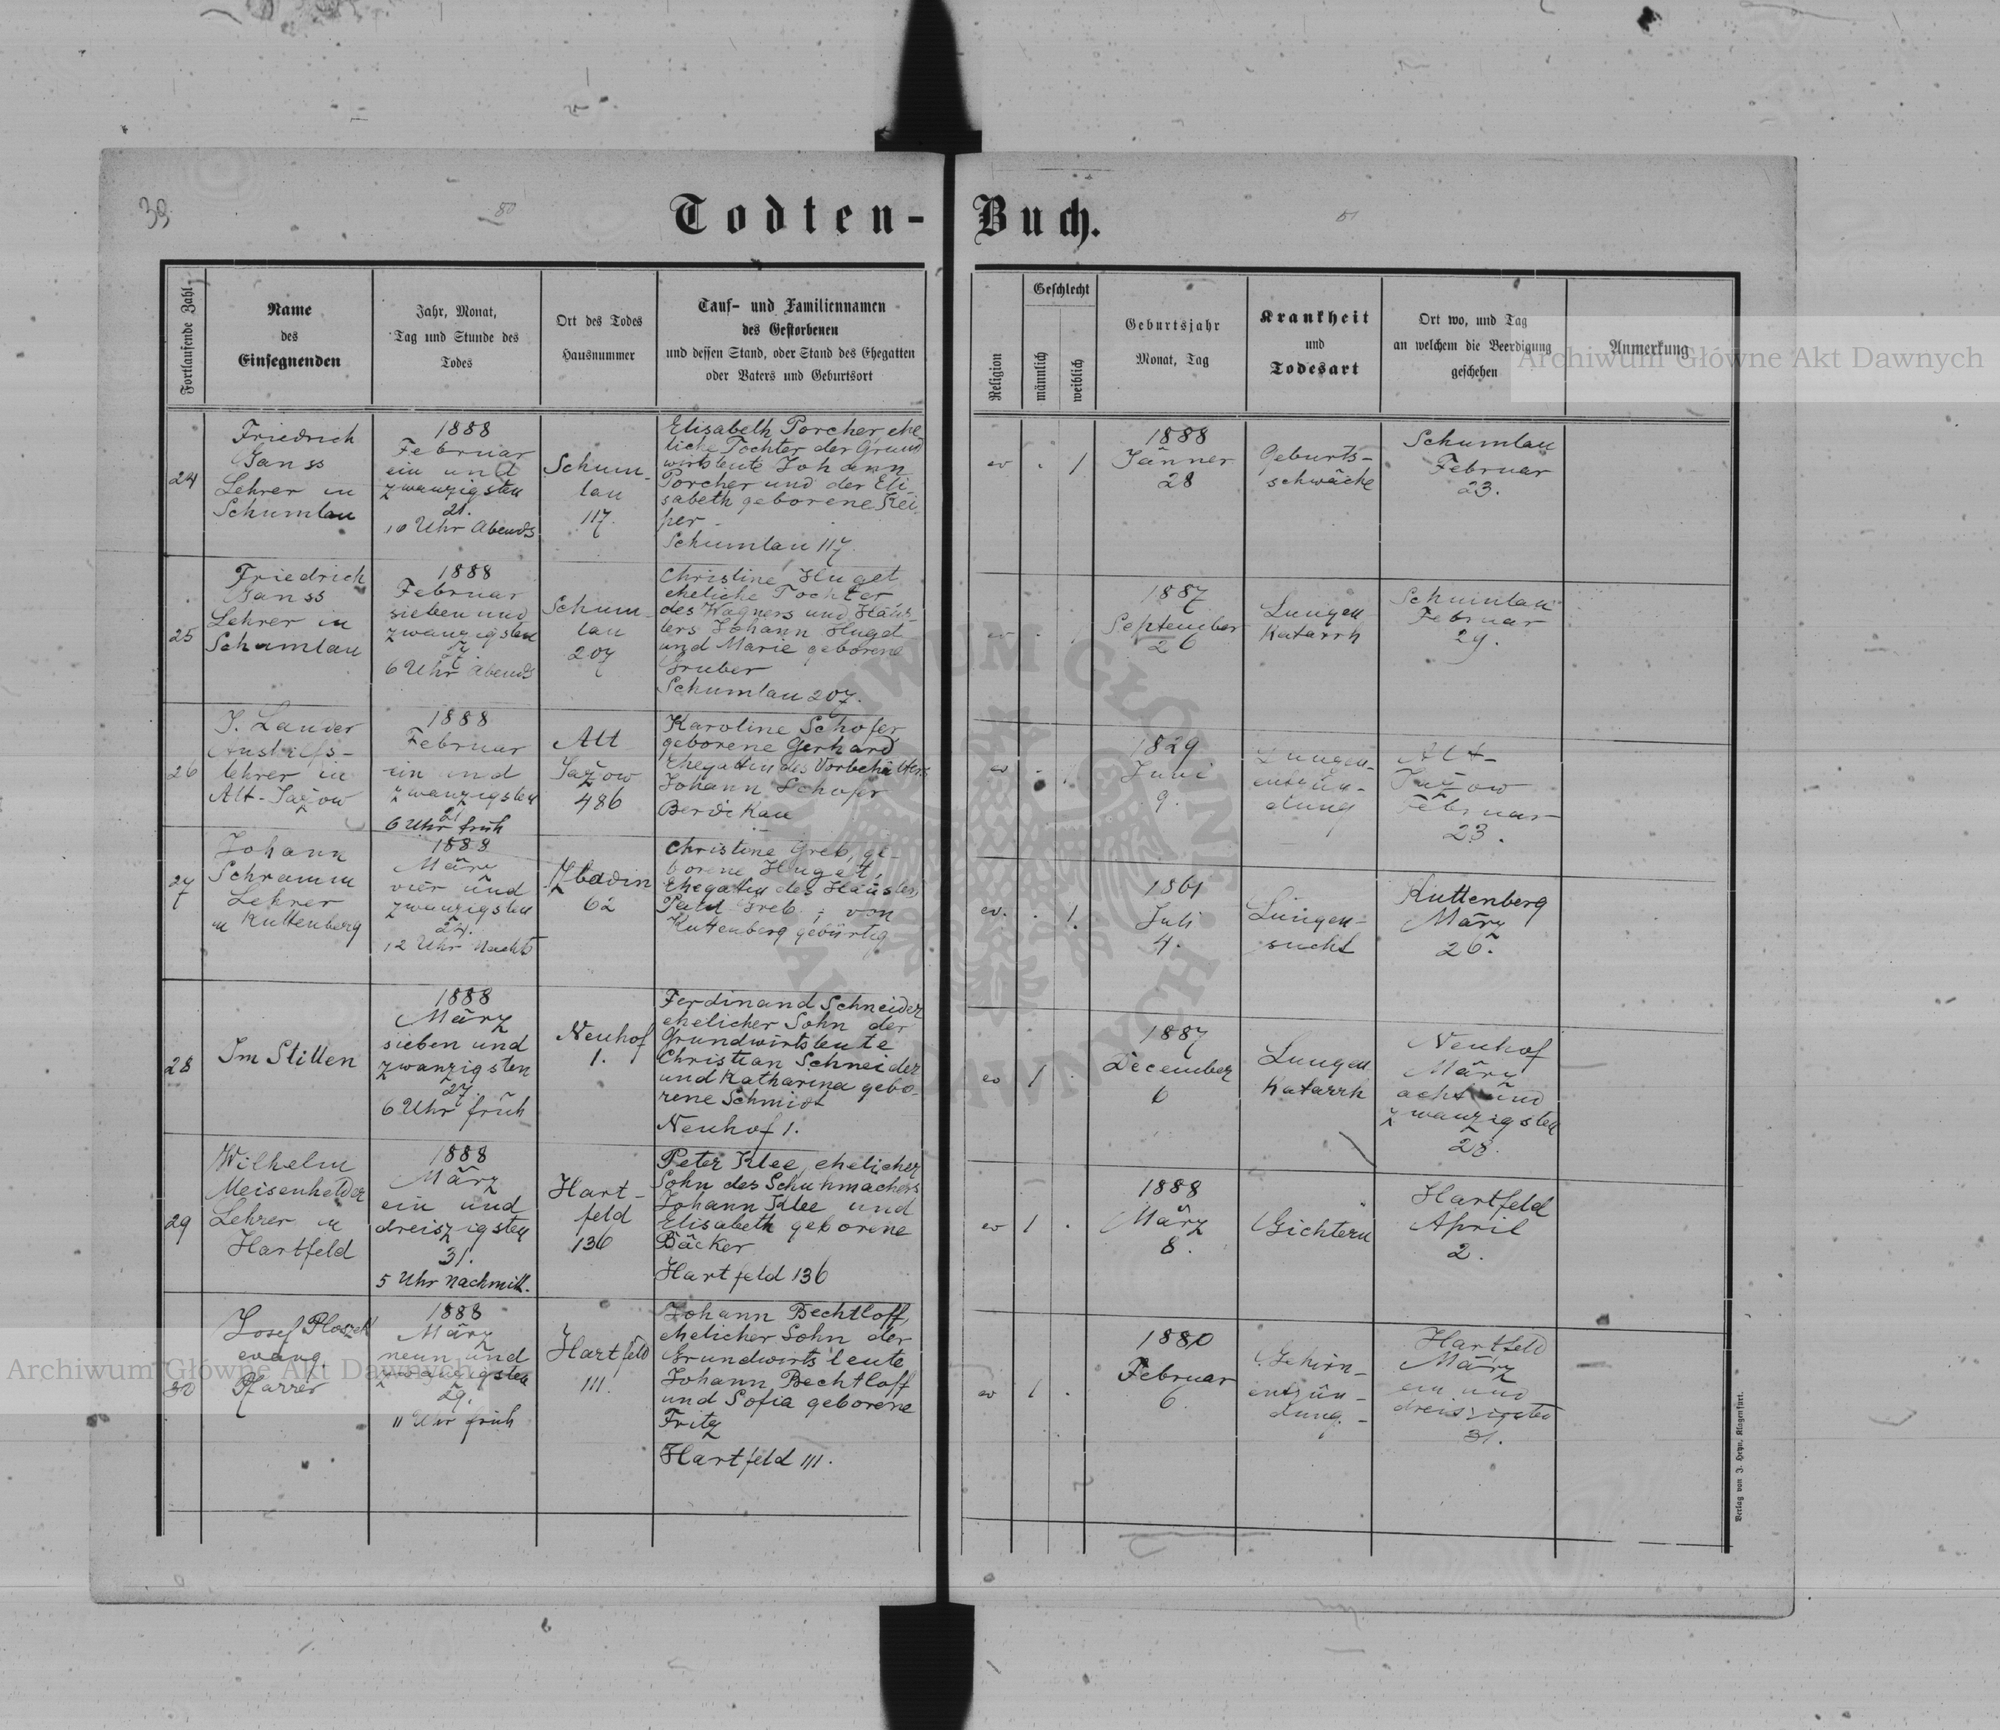 39.
80
Todten-Buch.
81
Fortlaufende Zahl
Name
des
Einsegnenden
Jahr, Monat,
Tag und Stunde des
Todes
Ort des Todes
Hausnummer
Tauf- und Familiennamen
des Gestorbenen
und dessen Stand, oder Stand des Ehegatten
oder Vaters und Geburtsort
Religion
Geschlecht
männlich
weiblich
Geburtsjahr
Monat, Tag
Krankheit
und
Todesart
Ort wo, und Tag
an welchem die Beerdigung
geschehen
Anmerkung
24
Friedrich
Ganss
Lehrer in
Schumlau
1888
Februar
ein und
zwanzigsten
21.
10 Uhr Abends
Schum-
lau
117.
Elisabeth Porcher, ehe-
liche Tochter der Grund
wirtsleute Johann
Porcher und der Eli
sabeth geborene Kei-
per -
Schumlau 117.
ev . 1
1888
Jänner
28
Geburts-
schwäche
Schumlau
Februar
23.
25
Friedrich
Ganss
Lehrer in
Schumlau
1888
Februar
sieben und
zwanzigsten
27.
6 Uhr Abends
Schum-
lau
207
Christine Huget
eheliche Tochter
des Wagners und Häus-
lers Johann Huget
und Marie geborene
Gruber
Schumlau 207.
ev . 1
1887
September
26
Lungen
Katarrh
Schumlau
Februar
29.
26
J. Lauder
Aushilfs-
lehrer in
Alt-Jažow
1888
Februar
ein und
zwanzigsten
21
6 Uhr früh
Alt
Jažow
486
Karoline Schofer
geborene Gerhard
Ehegattin des Vorbehälters
Johann Schofer
Berdikau
ev . 1
1829
Juni
9.
Lungen-
entzün-
dung
Alt-
Jažow
Februar
23.
27
Johann
Schramm
Lehrer
in Kuttenberg
1888
März
vier und
zwanzigsten
24.
12 Uhr Nachts
Zbadin
62
Christine Greb, ge-
borene Huget,
Ehegattin des Häuslers
Paul Greb; von
Kuttenberg gebürtig
ev. . 1.
1861
Juli
4.
Lungen-
sucht
Kuttenberg
März
26.
28
Im Stillen
1888
März
sieben und
zwanzigsten
27.
6 Uhr früh
Neuhof
1.
Ferdinand Schneider
ehelicher Sohn der
Grundwirtsleute
Christian Schneider
und Katharina gebo-
rene Schmidt
Neuhof 1.
ev 1 .
1887
December
6
Lungen
Katarrh
Neuhof
März
acht und
zwanzigsten
28.
29
Wilhelm
Meisenhelder
Lehrer in
Hartfeld
1888
März
ein und
dreiszigsten
31.
5 Uhr Nachmitt.
Hart-
feld
136
Peter Klee, ehelicher
Sohn des Schuhmachers
Johann Klee und
Elisabeth geborene
Bäcker
Hartfeld 136
ev 1 .
1888
März
8.
Gichtern
Hartfeld
April
2.
30
Josef Ploszek
evang
Pfarrer
1888
März
neun und
zwanzigsten
29.
11 Uhr früh
Hartfeld
111.
Johann Bechtloff,
ehelicher Sohn der
Grundwirtsleute
Johann Bechtloff
und Sofia geborene
Fritz
Hartfeld 111.
ev 1 .
1880
Februar
6.
Gehirn-
entzün-
dung. -
Hartfeld
März
ein und
dreiszigsten
31.
Verlag von J. Heyn, Klagenfurt.
Archiwum Główne Akt Dawnych
Archiwum Główne Akt Dawnych
ARCHIWUM GŁÓWNE AKT DAWNYCH